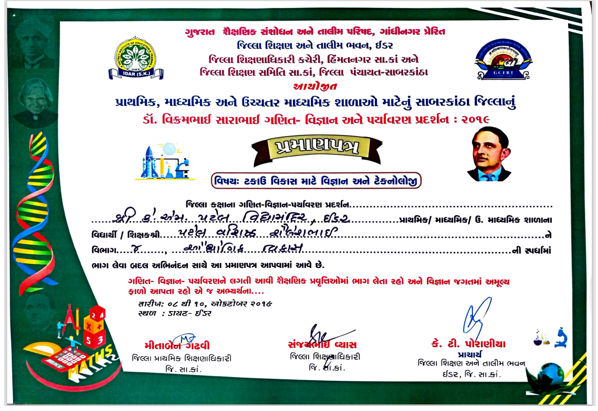 ગુજરાત શૈક્ષણિક સંશોધન અને તાલીમ પરિષદ, ગાંધીનગર પ્રેરિત
જિલ્લા શિક્ષણ અને તાલીમ ભવન, ઈડર
જિલ્લા શિક્ષણાધિકારી કચેરી, હિંમતનગર સા.કાં અને
જિલ્લા શિક્ષણ સમિતિ સા.કાં, જિલ્લા પંચાયત-સાબરકાંઠા
આયોજીત
પ્રાથમિક, માધ્યમિક અને ઉચ્ચતર માધ્યમિક શાળાઓ માટેનું સાબરકાંઠા જિલ્લાનું
ડૉ. વિક્રમભાઈ સારાભાઈ ગણિત- વિજ્ઞાન અને પર્યાવરણ પ્રદર્શન : ૨૦૧૯
પ્રમાણપત્ર
વિષય: ટકાઉ વિકાસ માટે વિજ્ઞાન અને ટેકનોલોજી
જિલ્લા કક્ષાના ગણિત-વિજ્ઞાન-પર્યાવરણ પ્રદર્શન
શ્રી કે. એમ. પટેલ વિદ્યામંદિર, ઈડર પ્રાથમિક/ માધ્યમિક/ ઉ. માધ્યમિક શાળાના
વિદ્યાર્થી / શિક્ષકશ્રી પટેલ શૈલેષભાઈ ને
વિભાગ ૪, ઔદ્યોગિક વિકાસ ની સ્પર્ધામાં
ભાગ લેવા બદલ અભિનંદન સાથે આ પ્રમાણપત્ર આપવામાં આવે છે.
ગણિત- વિજ્ઞાન- પર્યાવરણને લગતી આવી શૈક્ષણિક પ્રવૃત્તિઓમાં ભાગ લેતા રહો અને વિજ્ઞાન જગતમાં અમૂલ્ય
ફાળો આપતા રહો એ જ અભ્યર્થના....
તારીખ: ૦૮ થી ૧૦, ઓક્ટોબર ૨૦૧૯
સ્થળ : ડાયટ- ઈડર
મીતાબેન ગઢવી
જિલ્લા પ્રાથમિક શિક્ષણાધિકારી
જિ. સા.કાં.
સંજયભાઈ વ્યાસ
જિલ્લા શિક્ષણાધિકારી
જિ. સા.કાં.
કે. ટી. પોરાણીયા
પ્રાચાર્ય
જિલ્લા શિક્ષણ અને તાલીમ ભવન
ઈડર, જિ. સા.કાં.
IDAR (S.K.)
GCERT
MATHS